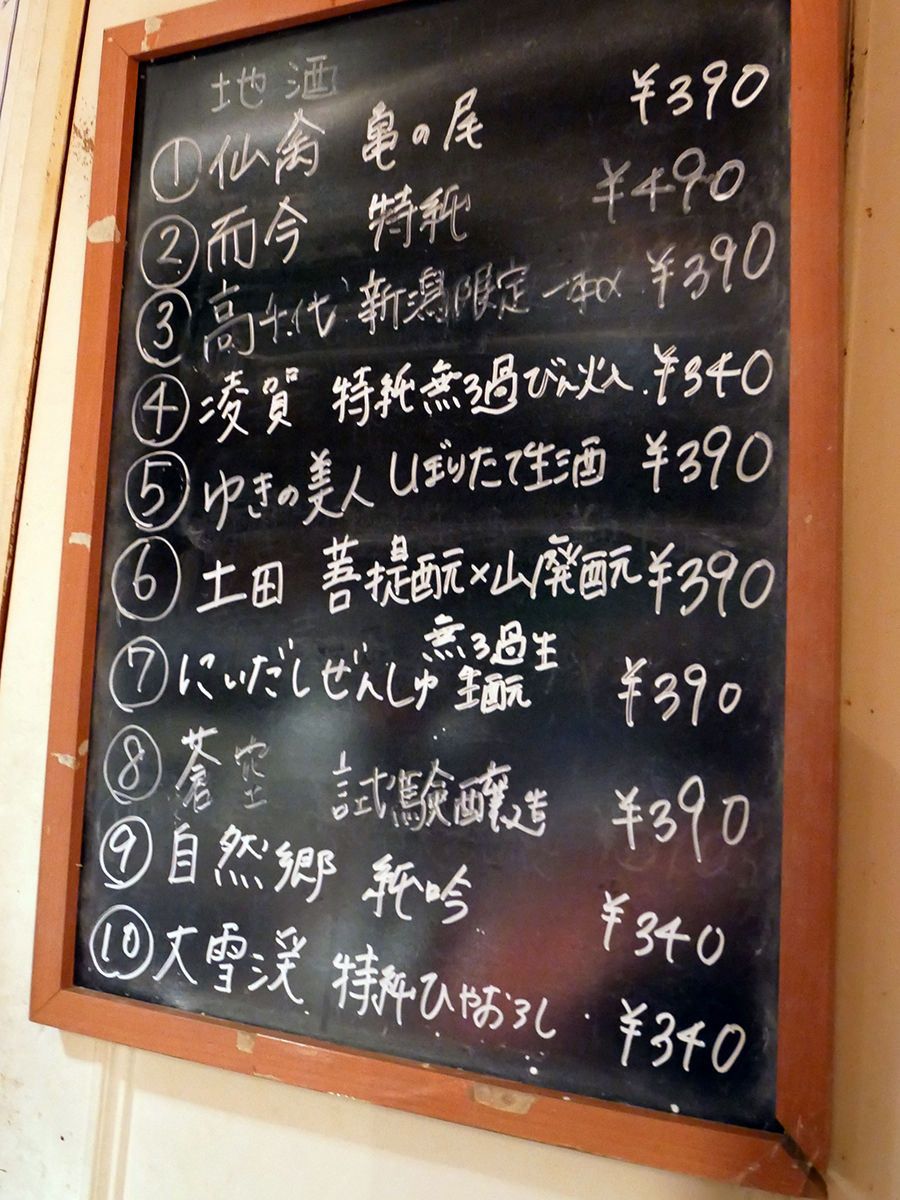 地酒
① 仙禽 亀の尾 ¥390
② 而今 特純 ¥490
③ 高千代 新潟限定一本〆 ¥390
④ 凌賀 特純無ろ過びん火入 ¥340
⑤ ゆきの美人 しぼりたて生酒 ¥390
⑥ 土田 菩提酛×山廃酛 ¥390
⑦ にいだしぜんしゅ 無ろ過生 生酛 ¥390
⑧ 蒼空 試験醸造 ¥390
⑨ 自然郷 純吟 ¥340
⑩ 大雪渓 特純ひやおろし ¥340